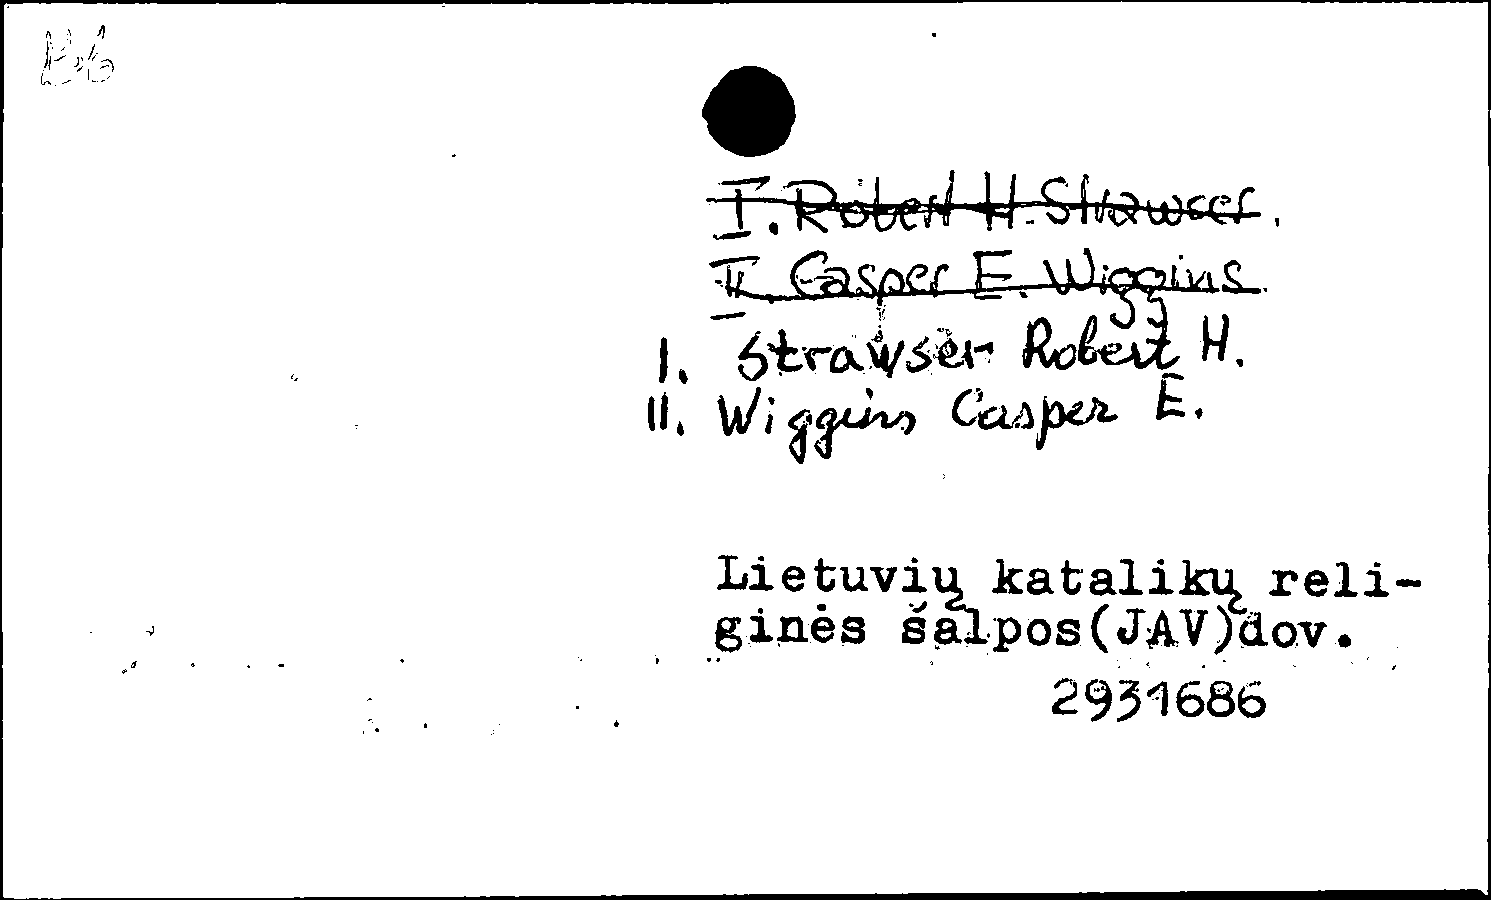 I. Robert H. Strawser.
II. Casper E. Wiggins
I. Strawser Robert H.
II. Wiggins Casper E.
Lietuvių katalikų reli-
ginės šalpos(JAV)dov.
2931686